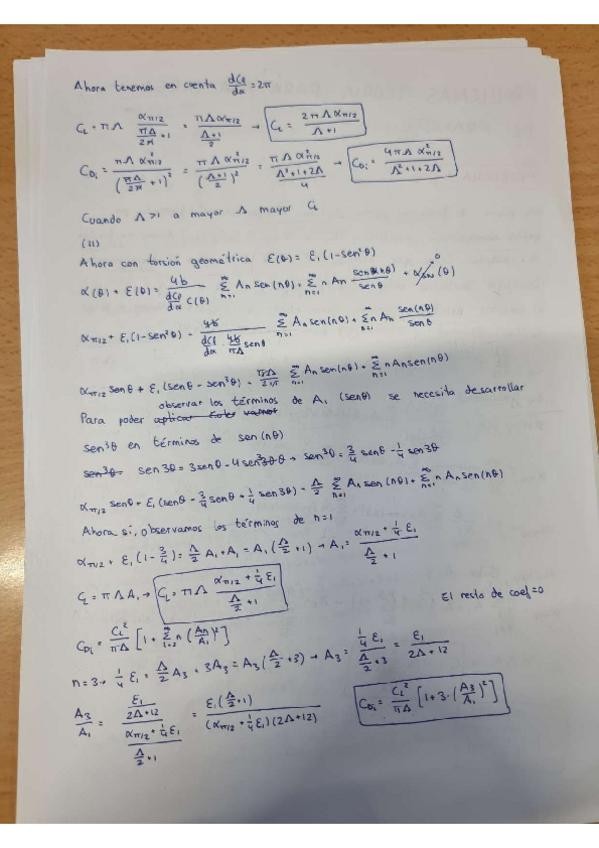 Ahora tenemos en cuenta dCl/dα = 2π
CL = πΛ απ/2 / (πΛ/2π + 1) = πΛ απ/2 / ((Λ+1)/2) → CL = 2πΛ απ/2 / (Λ+1)
CDi = πΛ α²π/2 / (πΛ/2π + 1)² = πΛ α²π/2 / ((Λ+1)/2)² = πΛ α²π/2 / ((Λ²+1+2Λ)/4) → CDi = 4πΛ α²π/2 / (Λ²+1+2Λ)
Cuando Λ>1 a mayor Λ mayor CL
(11)
Ahora con torsión geométrica ε(θ) = ε1(1-sen²θ)
α(θ) + ε(θ) = 4b / (dCl/dα C(θ)) Σ∞n=1 An sen(nθ) + Σ∞n=1 n An sen(nθ)/senθ + (θ) 0
απ/2 + ε1(1-sen²θ) = 4b / (dCl/dα · 4b/πΛ senθ) Σ∞n=1 An sen(nθ) + Σ∞n=1 n An sen(nθ)/senθ
απ/2 senθ + ε1(senθ - sen³θ) = πΛ/2π Σ∞n=1 An sen(nθ) + Σ∞n=1 nAn sen(nθ)
observar los términos de A1 (senθ) se necesita desarrollar
Para poder aplicar Euler vamos
sen³θ en términos de sen(nθ)
sen³θ = sen3θ = 3senθ - 4sen³θ → sen³θ = 3/4 senθ - 1/4 sen3θ
απ/2 senθ + ε1(senθ - 3/4 senθ + 1/4 sen3θ) = Λ/2 Σ∞n=1 An sen(nθ) + Σ∞n=1 n An sen(nθ)
Ahora sí, observamos los términos de n=1
απ/2 + ε1(1-3/4) = Λ/2 A1 + A1 = A1(Λ/2 + 1) → A1 = (απ/2 + 1/4 ε1) / (Λ/2 + 1)
CL = πΛA1 → CL = πΛ (απ/2 + 1/4 ε1) / (Λ/2 + 1)
El resto de coef=0
CDi = CL²/πΛ [1 + Σ∞ n (An/A1)²]
n=3 → 1/4 ε1 = Λ/2 A3 + 3A3 = A3(Λ/2 + 3) → A3 = 1/4 ε1 / (Λ/2 + 3) = ε1 / (2Λ+12)
A3/A1 = (ε1/(2Λ+12)) / ((απ/2 + 1/4 ε1)/(Λ/2 + 1)) = ε1(Λ/2 + 1) / ((απ/2 + 1/4 ε1)(2Λ+12))
CDi = CL²/πΛ [1 + 3·(A3/A1)²]